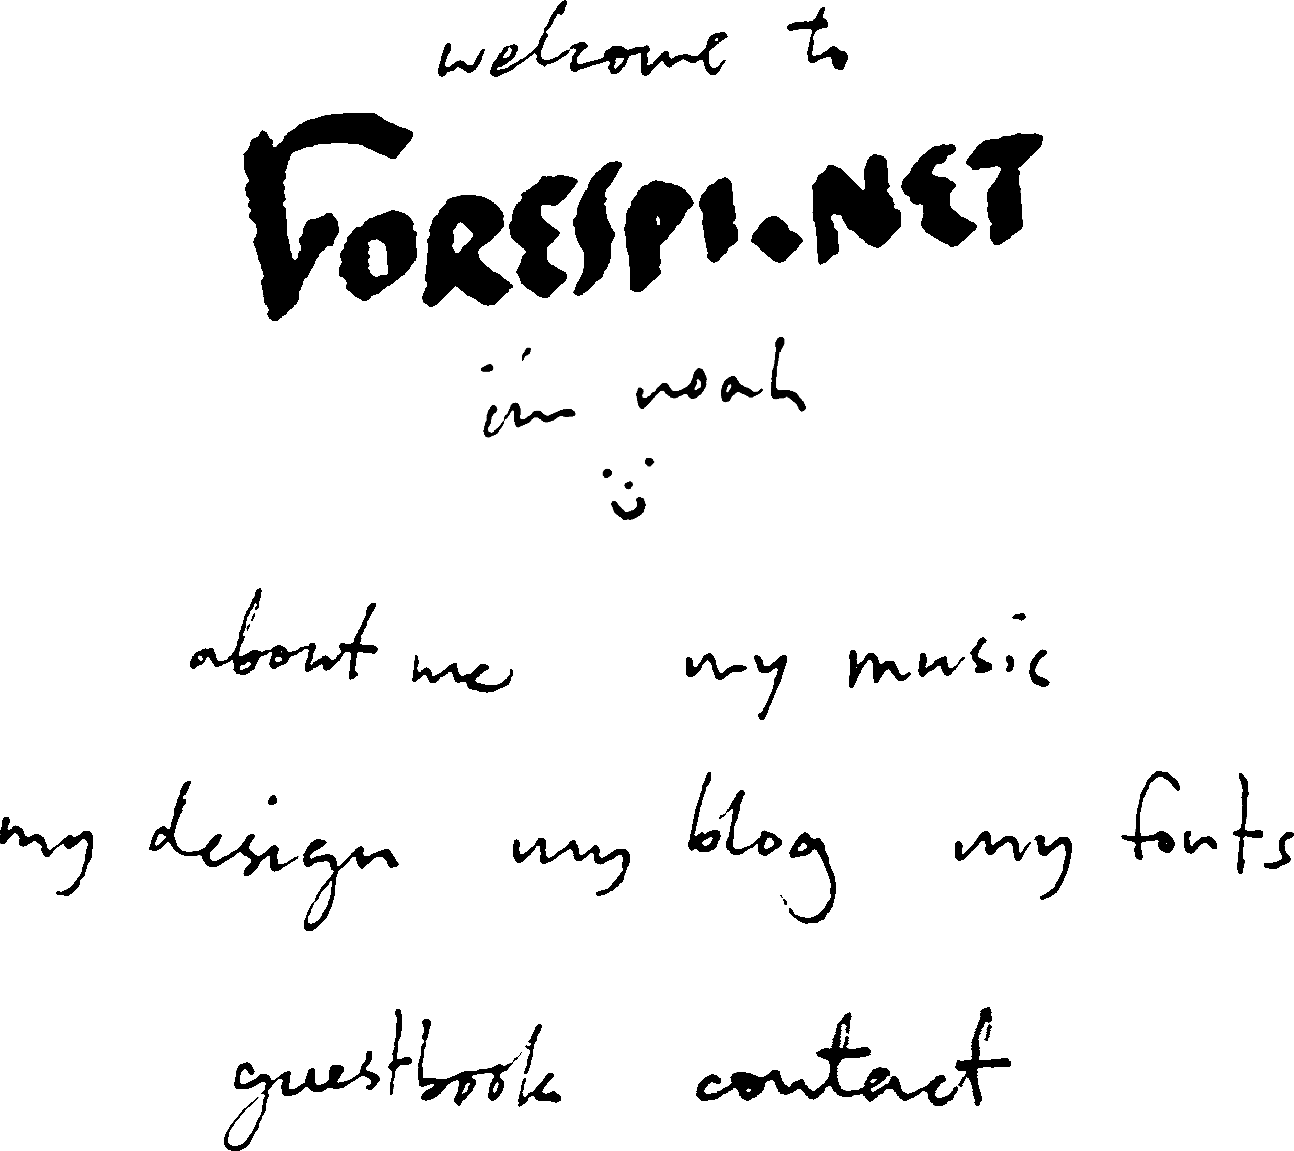 welcome to
FORESPI.NET
i'm noah
about me my music
my design my blog my fonts
guestbook contact